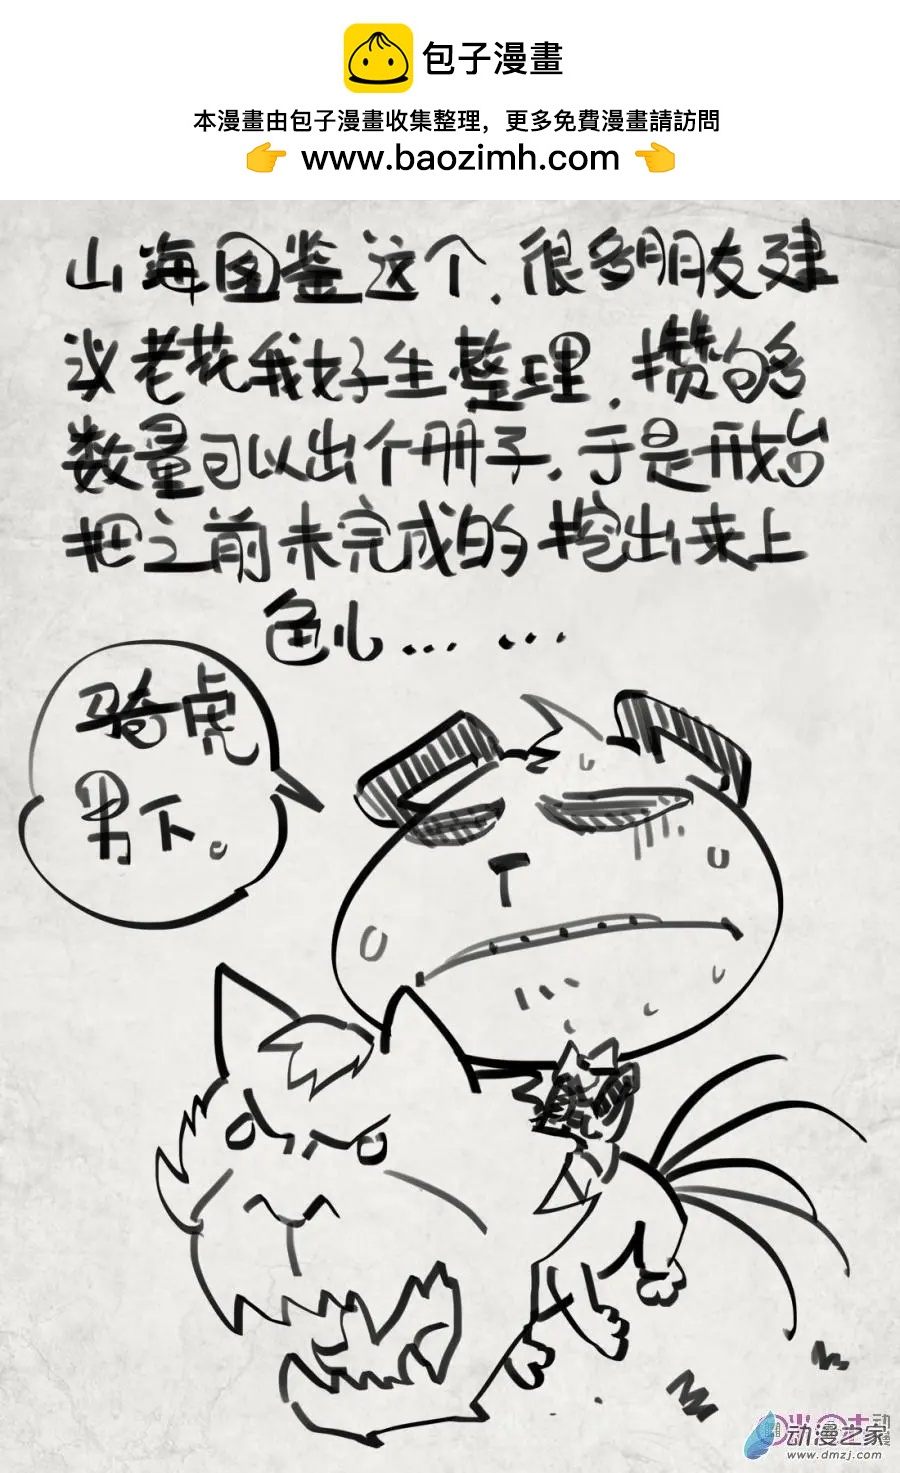 包子漫畫
本漫畫由包子漫畫收集整理，更多免費漫畫請訪問
👉 www.baozimh.com 👈
山海图鉴这个，很多朋友建
议老花我好生整理，攒够
数量可以出个册子，于是开始
把之前未完成的挖出来上
色儿……
骑虎
男下。
动漫之家
www.dmzj.com